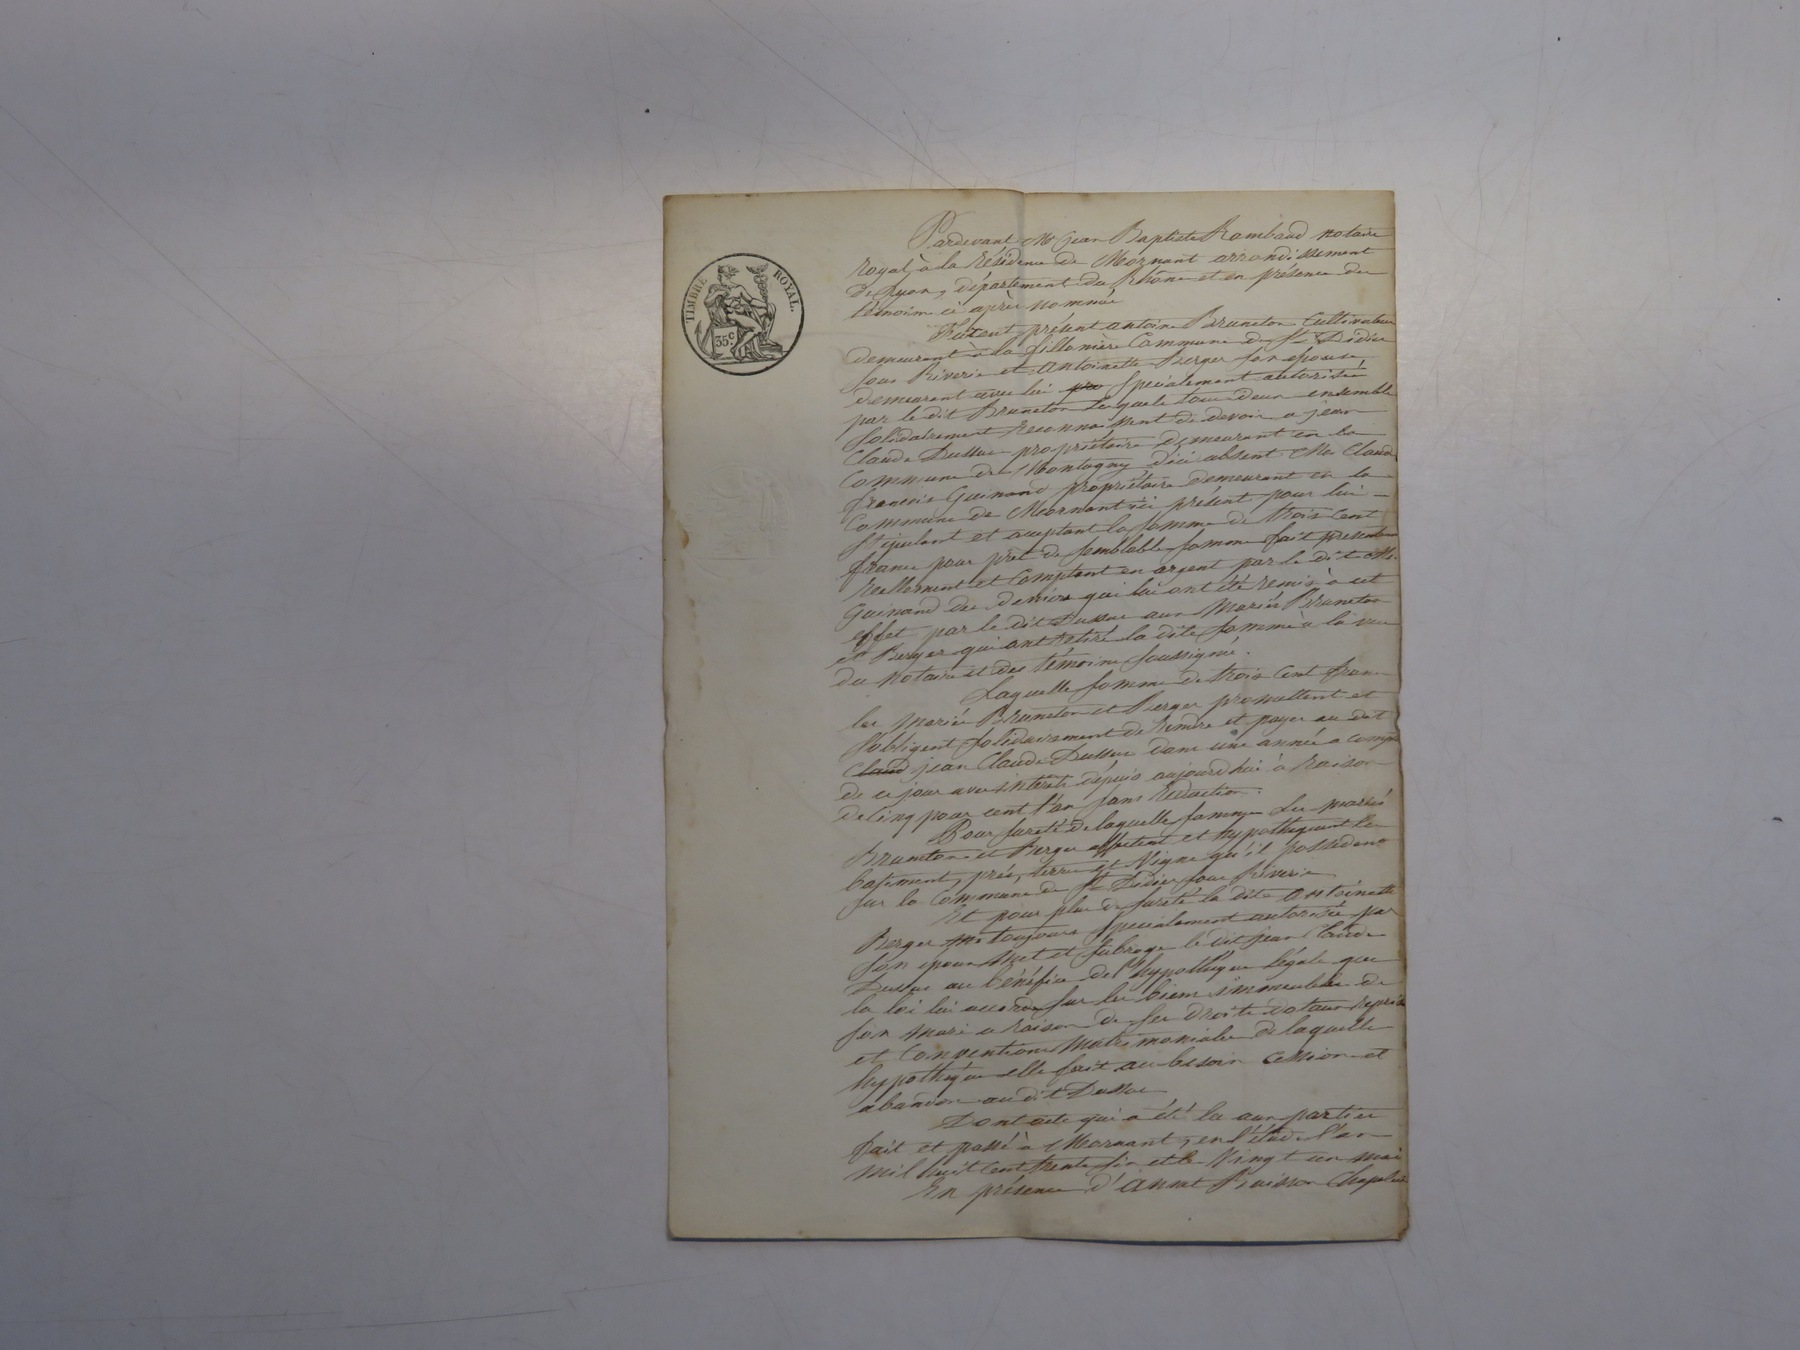 TIMBRE ROYAL.
35c
Pardevant Me jean Baptiste Rambaud notaire
royal, à la résidence de Mornant arrondissement
de Lyon, département du Rhône et en présence des
témoins ci après nommés
Furent présent antoine Bruneton Cultivateur
demeurant à la fillonière Commune de St Didier
sous Riverie et Antoinette Berger son épouse,
demeurant avec lui spécialement autorisée
par le dit Bruneton Lesquels tous deux ensemble
solidairement reconnaissent de devoir a jean
Claude Dussuc propriétaire demeurant en la
Commune de Montagny d'ici absent Me Claude
françois Guinand propriétaire demeurant en la
Commune de Mornant ici présent pour lui
stipulant et acceptant la somme de trois cent
francs pour prêt de semblable somme fait présentement
réellement et comptant en argent par le dit Me
Guinand des deniers qui lui ont été remis à cet
effet par le dit Dussuc aux mariés Bruneton
et Berger qui ont retiré la dite somme à la vue
du notaire et des témoins soussignés.
Laquelle somme de trois cent francs
les mariés Bruneton et Berger promettent et
s'obligent solidairement de rendre et payer au dit
Claud jean Claude Dussuc dans une année a compter
de ce jour avec intérêts dépuis aujourd'hui à raison
de cinq pour cent l'an sans réduction.
Pour sureté de laquelle somme Les mariés
Bruneton et Berger affectent et hypothèquent les
batiments, prés, terres et Vignes qu'ils possèdent
sur la Commune de St Didier sous Riverie
Et pour plus de sureté la dite antoinette
Berger toujours spécialement autorisée par
son époux met et subroge le dit jean Claude
Dussuc au bénéfice de l'hypothèque légale que
la loi lui accorde sur les biens immeubles de
son mari a raison de ses droits dotaux reprises
et Conventions matrimoniales de laquelle
hypothèque elle fait au besoin cession et
abandon au dit Dussuc
Dont acte qui a été lu aux parties
fait et passé à Mornant, en l'étude l'an
mil huit cent trente six et le Vingt un mai
En présence d'annet Chapelier